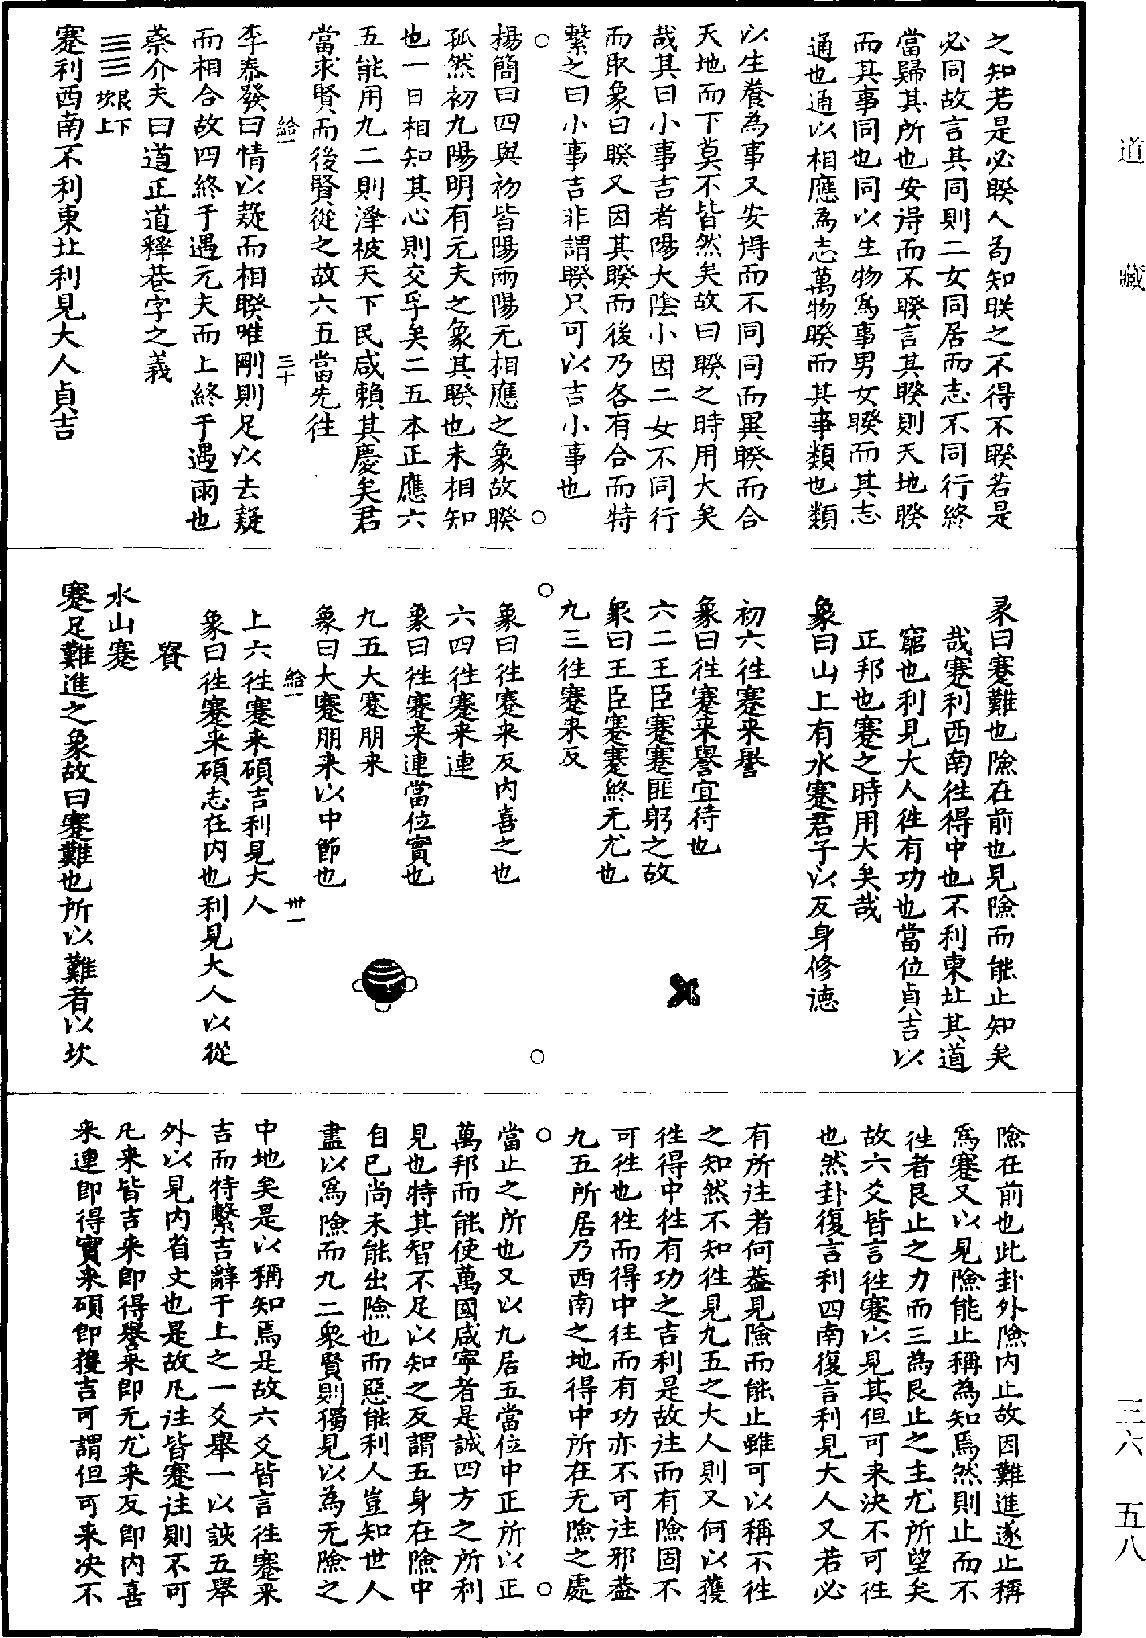 道藏
三六
五八
之知若是必睽人苟知睽之不得不睽若是
必同故言其同則二女同居而志不同行終
當歸其所也安得而不睽言其睽則天地睽
而其事同也同以生物爲事男女睽而其志
通也通以相應爲志萬物睽而其事類也類
以生養為事又安得而不同同而異睽而合
天地而下莫不皆然矣故曰睽之時用大矣
哉其曰小事吉者陽大陰小因二女不同行
而取象曰睽又因其睽而後乃各有合而特
繫之曰小事吉非謂睽只可以吉小事也
楊簡曰四與初皆陽兩陽无相應之象故睽
孤然初九陽明有元夫之象其睽也未相知
也一日相知其心則交孚矣二五本正應六
五能用九二則澤被天下民咸賴其慶矣君
當求賢而後賢從之故六五當先往
給一 三十
李泰發曰情以疑而相睽唯剛則足以去疑
而相合故四終于遇元夫而上終于遇雨也
蔡介夫曰道正道釋巷字之義
䷦艮下坎上
蹇利西南不利東北利見大人貞吉
彖曰蹇難也險在前也見險而能止知矣
哉蹇利西南往得中也不利東北其道
窮也利見大人往有功也當位貞吉以
正邦也蹇之時用大矣哉
象曰山上有水蹇君子以反身修德
初六往蹇来譽
象曰往蹇来譽宜待也
六二王臣蹇蹇匪躬之故
象曰王臣蹇蹇終无尤也
九三往蹇来反
象曰往蹇来反内喜之也
六四往蹇来連
象曰往蹇来連當位實也
九五大蹇朋来
象曰大蹇朋来以中節也
給一 卅一
上六往蹇来碩吉利見大人
象曰往蹇来碩志在内也利見大人以從
貴
水山蹇
蹇足難進之象故曰蹇難也所以難者以坎
險在前也此卦外險内止故因難進遂止稱
爲蹇又以見險能止稱為知焉然則止而不
往者艮止之力而三為艮止之主尤所望矣
故六爻皆言往蹇以見其但可来决不可往
也然卦復言利四南復言利見大人又若必
有所往者何葢見險而能止雖可以稱不往
之知然不知往見九五之大人則又何以獲
往得中往有功之吉利是故往而有險固不
可往也往而得中往而有功亦不可往邪葢
九五所居乃西南之地得中所在无險之處
當止之所也又以九居五當位中正所以正
萬邦而能使萬國咸寧者是誠四方之所利
見也特其智不足以知之反謂五身在險中
自已尚未能出險也而惡能利人豈知世人
盡以爲險而九二衆賢則獨見以為无險之
中地矣是以稱知焉是故六爻皆言往蹇来
吉而特繫吉辭于上之一爻舉一以該五舉
外以見内省文也是故凡往皆蹇往則不可
凡来皆吉来即得譽来即无尤来反即内喜
来連即得實来碩即獲吉可謂但可来决不